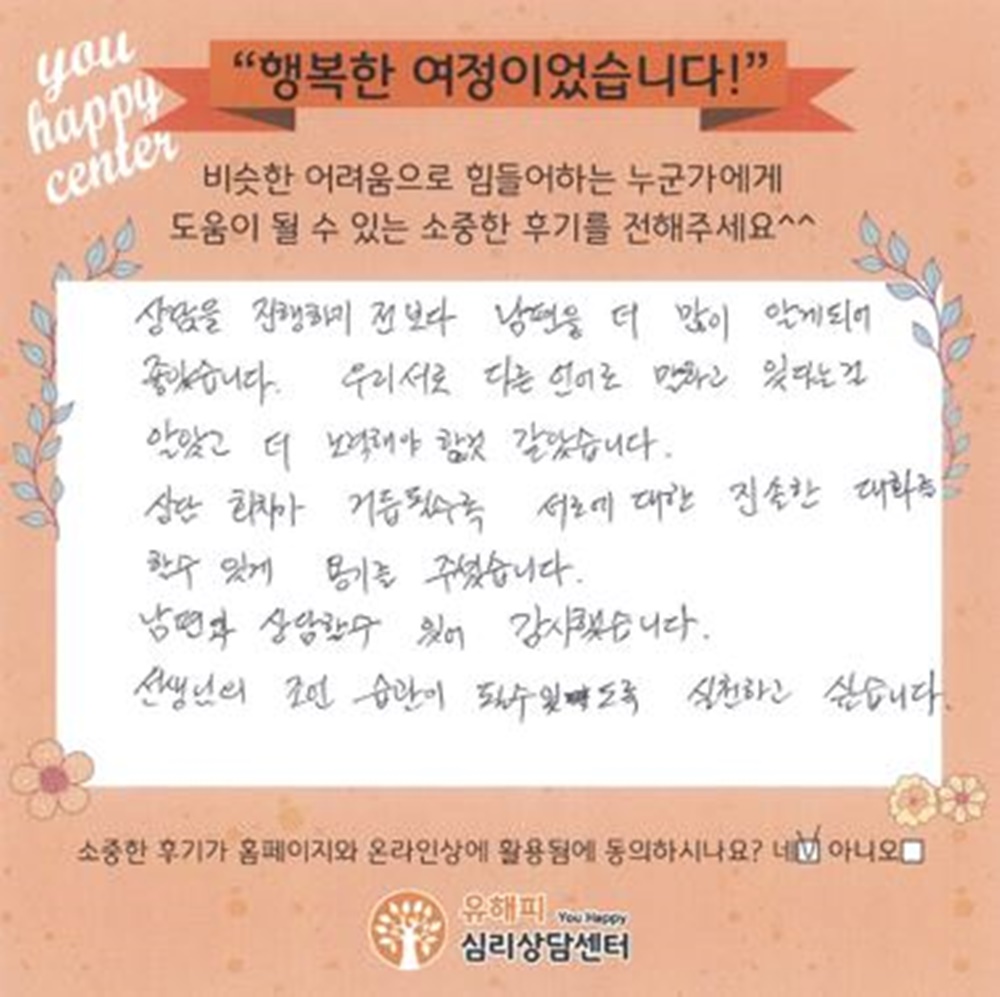 you
happy
center
“행복한 여정이었습니다!”
비슷한 어려움으로 힘들어하는 누군가에게
도움이 될 수 있는 소중한 후기를 전해주세요^^
상담을 진행하기 전보다 남편을 더 많이 알게되어
좋았습니다. 우리서로 다른 언어로 말하고 있다는걸
알았고 더 노력해야 할것 같았습니다.
상단 회차가 거듭될수록 서로에 대한 진솔한 대화를
할수 있게 용기를 주셨습니다.
남편과 상담할수 있어 감사했습니다.
선생님의 조언 습관이 될수있도록 실천하고 싶습니다.
소중한 후기가 홈페이지와 온라인상에 활용됨에 동의하시나요? 네 V 아니오
유해피 You Happy
심리상담센터